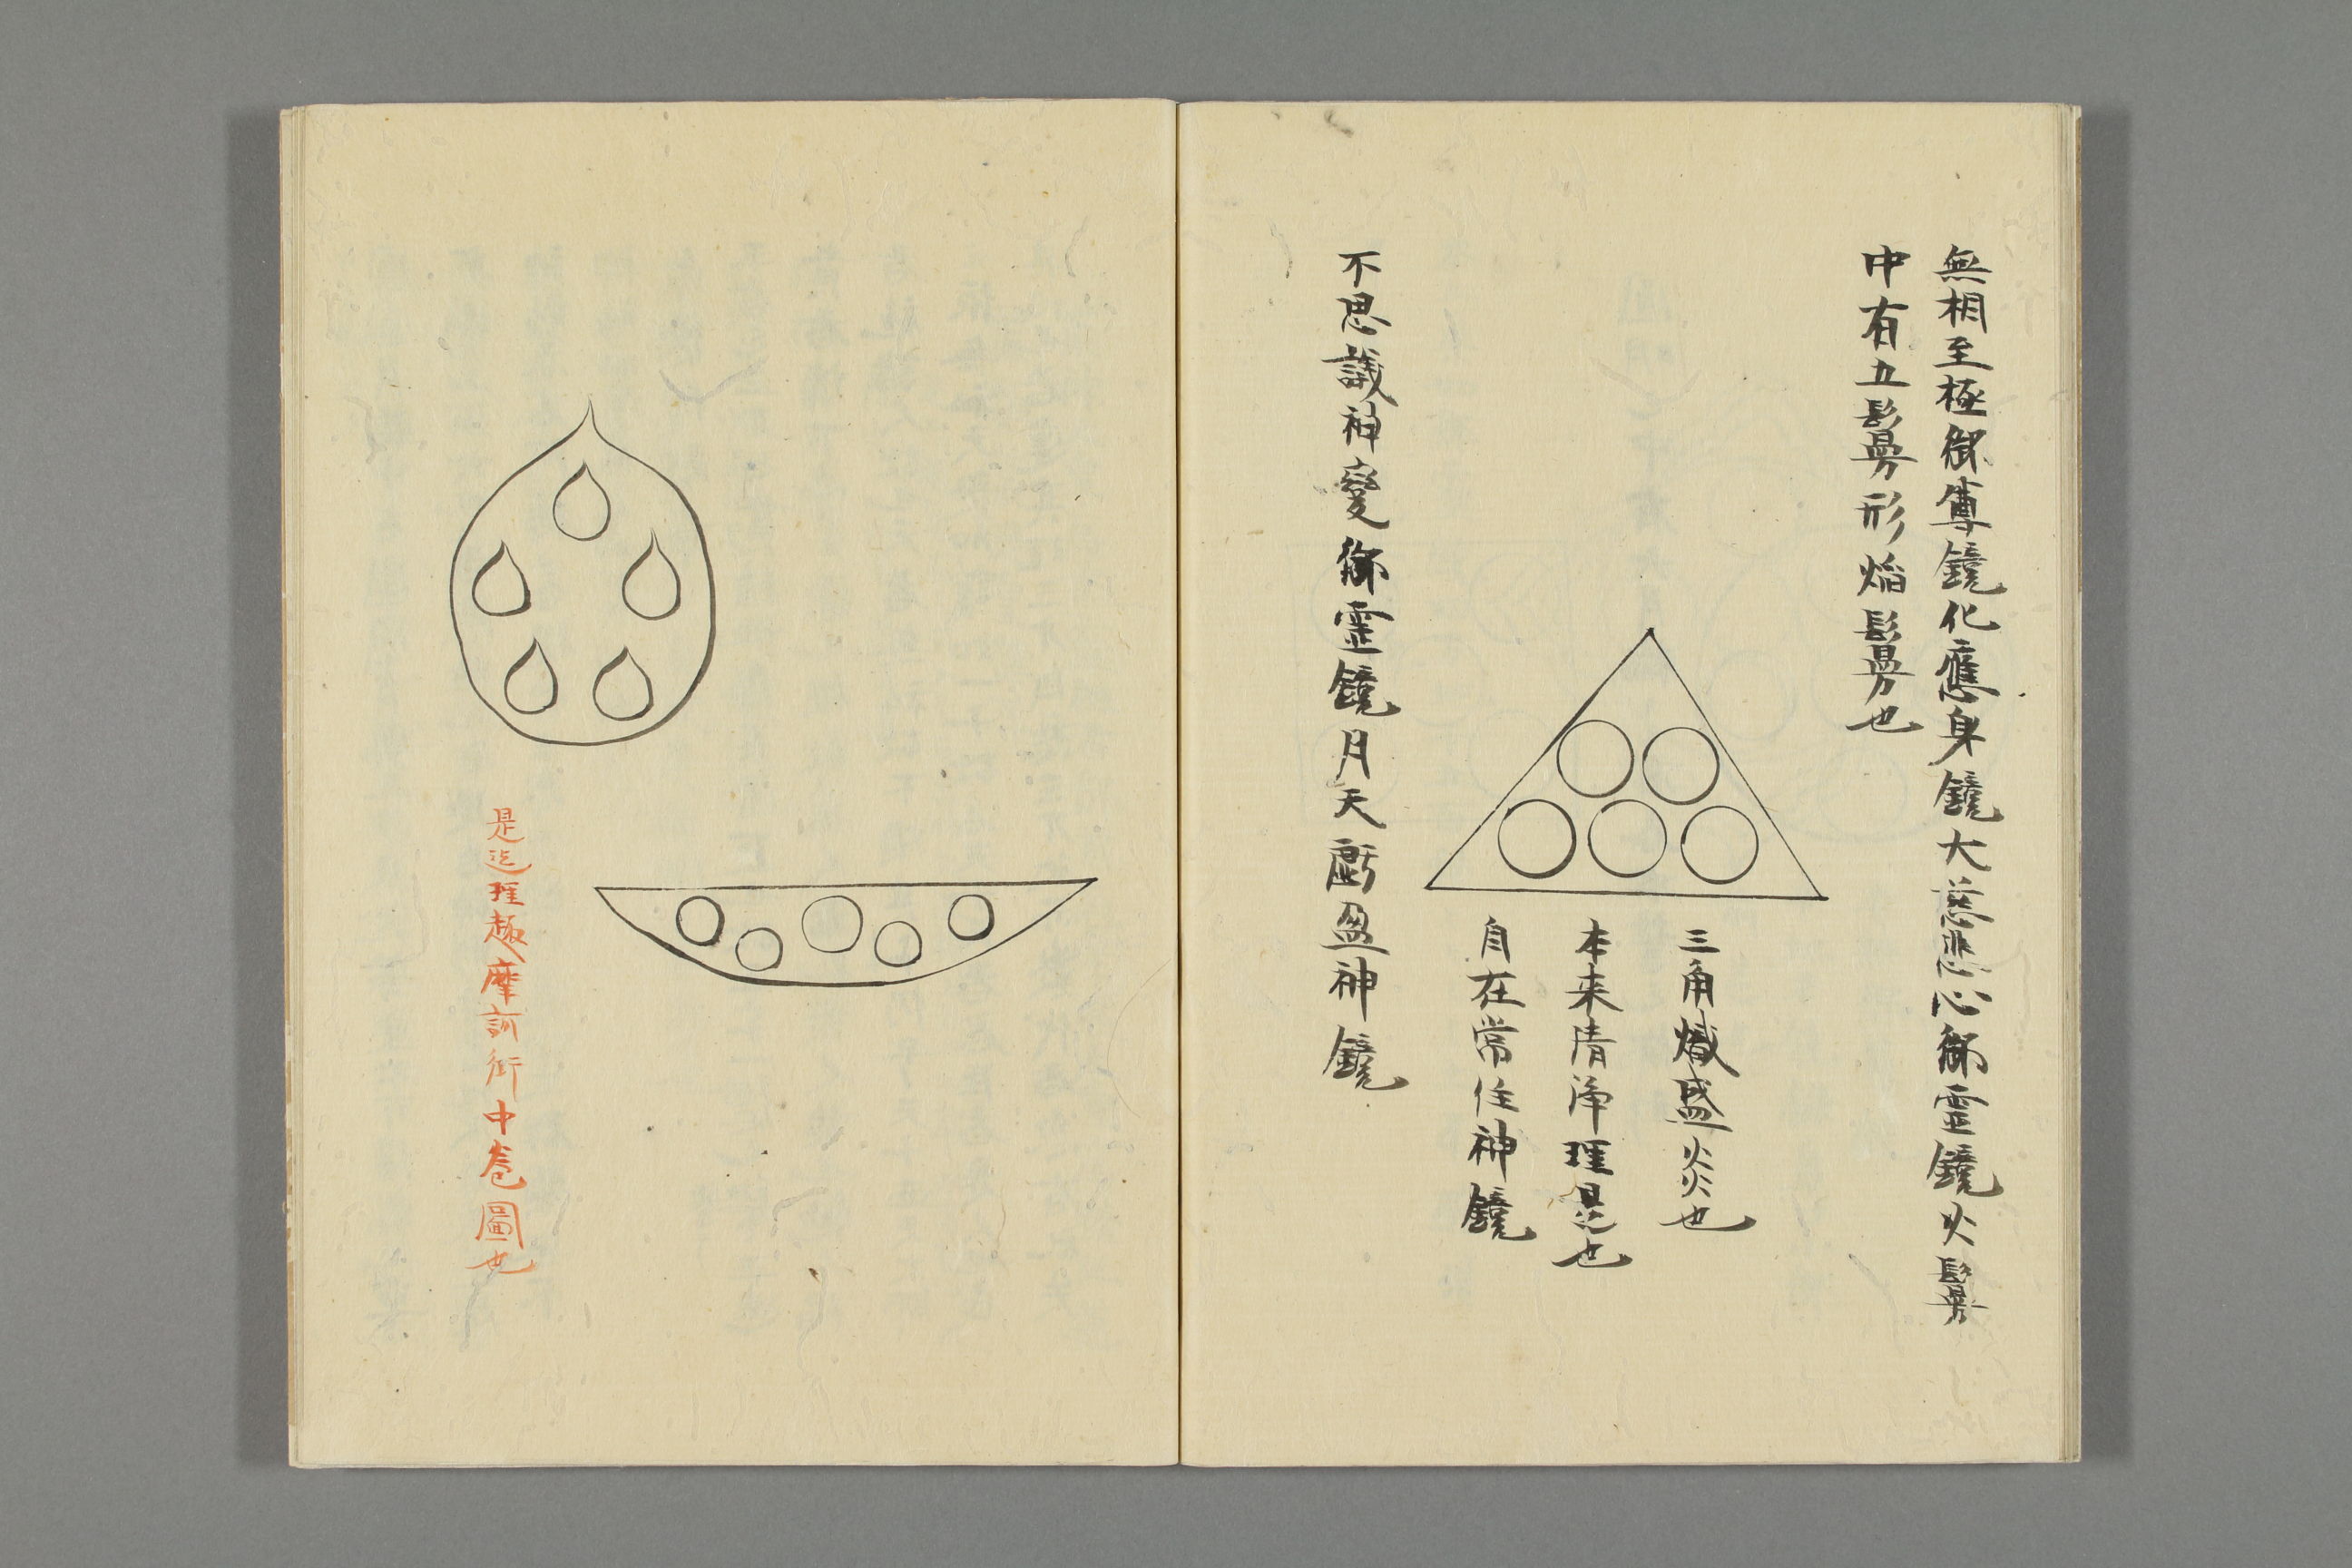 無相至極御尊鏡化應身鏡大慈悲心御霊鏡火鬘
中有五鬘形焔鬘也
三角熾盛火炎也
本来清浄理是也
自在常住神鏡
不思議神変御霊鏡月天虧盈神鏡
是迄理趣摩訶衍中巻圖也